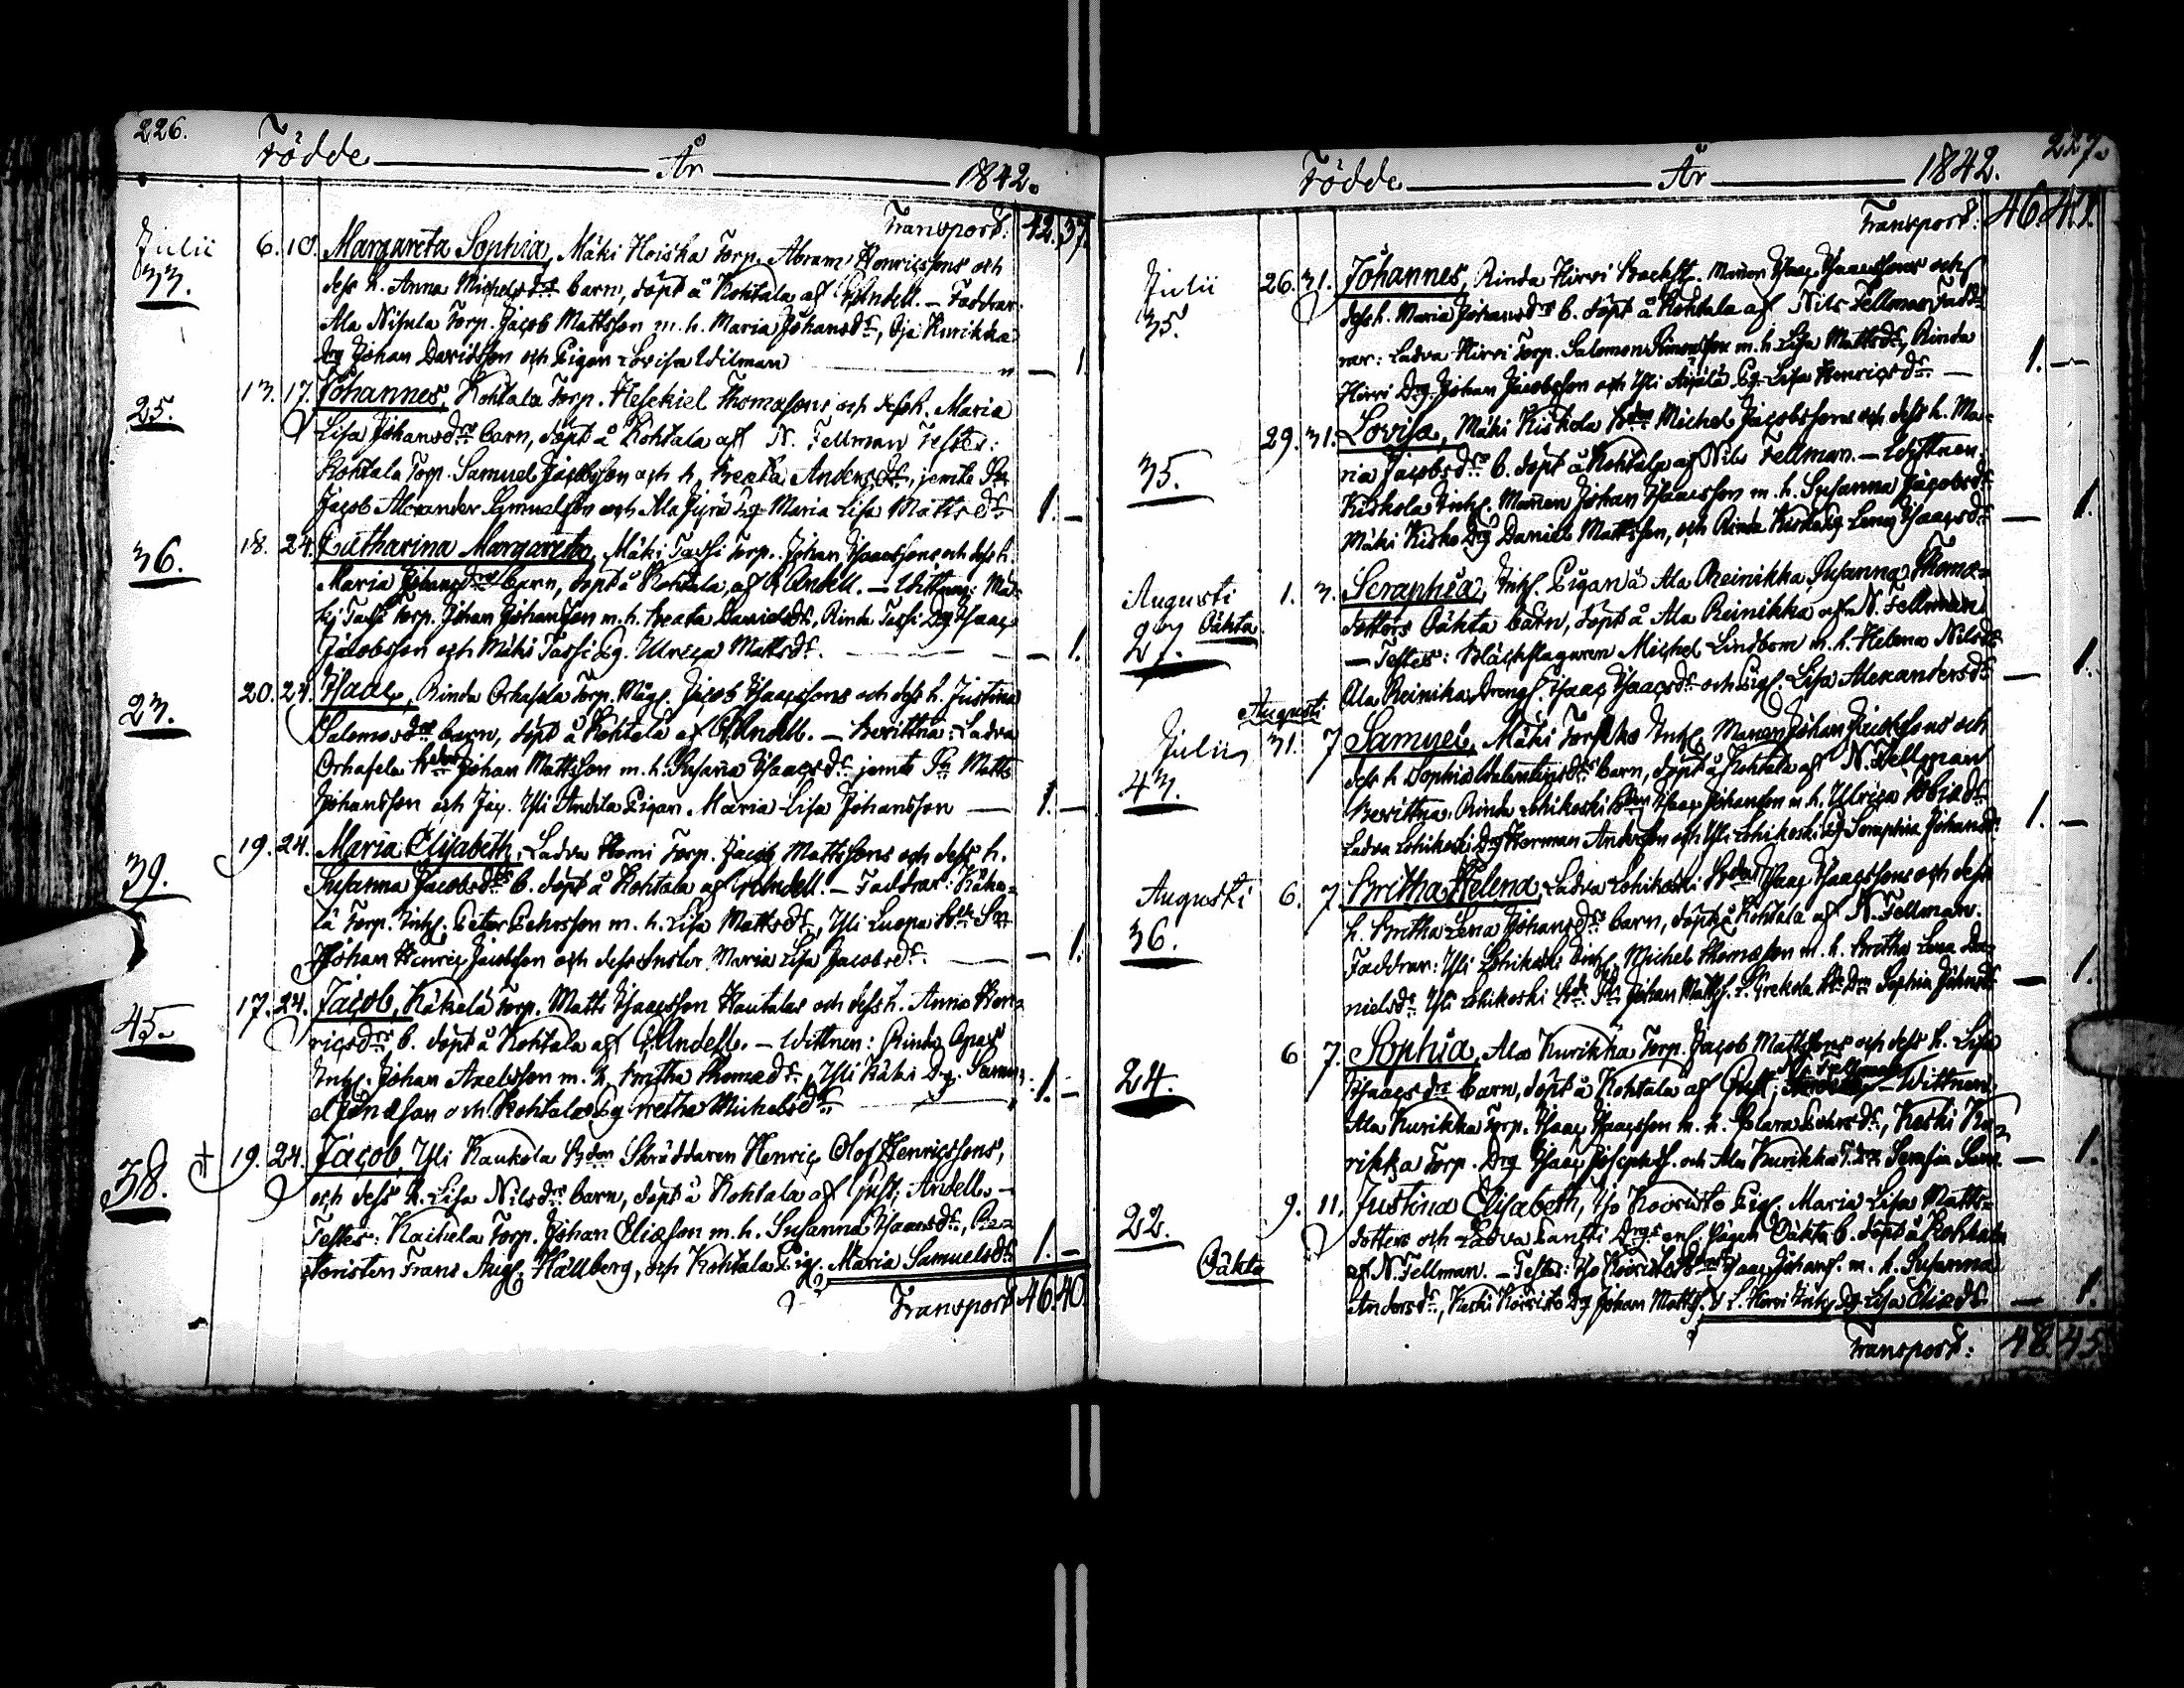 226.
Födde År 1842.
Transport: 42. 37.
Julii 6. 10. Margareta Sophia, Mäki Hoiska Torp. Abram Henricssons och
33. dess h. Anna Michelsdrs barn, döpt å Kohtala af G. Andell. – Faddrar:
Ala Nisula Torp. Jacob Mattsson m. h. Maria Johansdr, Oja Kurikka
Drg Johan Davidsson och Pigan Lovisa Widman — 1.
25. 13. 17. Johannes, Kohtala Torp. Hesekiel Thomasons och dess h. Maria
Lisa Johansdrs barn, döpt å Kohtala af N. Fellman Testes:
Kohtala Torp. Samuel Jacobsson och h. Beata Andersdr, jemte Sn
Jacob Alexander Samuelsson och Ala Jyrä Pig. Maria Lisa Mattsdr 1. —
36. 18. 24. Catharina Margareta, Mäki Tassi Torp. Johan Isaacssons och dess h.
Maria Johansdrs barn, döpt å Kohtala, af G. Andell. – Wittnen: Mä-
ki Tassi Torp. Johan Johansson m. h. Beata Danielsdr, Rinda Tassi Drg Isaac
Jacobsson och Mäki Tassi Pig. Ulrica Mattsdr. — 1.
23. 20. 24. Isaac, Rinda Orhasela Torp. Måg. Jacob Isaacssons och dess h. Justina
Salomonsdrs barn, döpt å Kohtala af G. Andell. – Bevittna: Ladva
Orhasela Bden Johan Mattsson m. h. Susanna Isaacsdr jemte Sn Matts
Johansson och Jac. Yli Andila Pigan Maria Lisa Johansson — 1. —
39. 19. 24. Maria Elisabeth, Ladva Horni Torp. Jacob Mattssons och dess h.
Susanna Jacobsdrs b. döpt å Kohtala af G. Andell. – Faddrar: Käke-
lä Torp. Inh. Peter Pehrsson m. h. Lisa Mattsdr, Yli Luopa Bde Sn
Johan Henric Jacobsson och dess Syster Maria Lisa Jacobsdr. — 1.
45. 17. 24. Jacob, Käkelä Torp. Matts Isaacsson Hautalas och dess h. Anna Hen-
ricsdrs b. döpt å Kohtala af G. Andell. – Wittnen: Rinda
Inh. Johan Axelsson m. h. Britha Thomædr, Yli Käki Drg. Samu-
el Jonæson och Kohtala Pig Gretha Michelsdr 1. —
38. † 19. 24. Jacob, Yli Kaukola Bden Skräddaren Henric Olof Henricssons,
och dess h. Lisa Nilsdrs barn, döpt å Kohtala af Gust. Andell. –
Testes: Kaihela Torp. Johan Eliæson m. h. Susanna Isaacsdr,
Frans Aug. Hällberg, och Kohtala Pig. Maria Samuelsdr 1. —
Transport 46. 40.
227.
Födde År 1842.
Transport: 46. 41.
Julii 26. 31. Johannes, Rinda Hirvi Backst. Mannen Isaac Isaacssons och
35. dess h. Maria Johansdrs b. döpt å Kohtala af Nils Fellman Fadd-
rar: Ladva Hirvi Torp. Salomon Simonsson m. h. Lisa Mattsdr, Rinda
Hirvi Drg. Johan Jacobsson och Yli Pig. Lisa Henricsdr. — 1. —
29. 31. Lovisa, Mäki Kiskola Bden Michel Jacobssons och dess h. Ma-
35. ria Jacobsdrs b. döpt å Kohtala af Nils Fellman. – Wittnen:
Kiskola Inh. Mannen Johan Isaacsson m. h. Susanna Jacobsdr
Mäki Kisko Drg Daniel Mattsson, och Rinda Kisko Pig. Lena Isaacsdr — 1.
Augusti 1. 3. Seraphia, Inh. Pigan å Ala Reinikka Susanna Thomæ-
27. Oäkta dotters Oäkta barn, döpt å Ala Reinikka af N. Fellman
– Testes: Bläckslagaren Michel Lindbom m. h. Helena Nilsdr
Ala Reinikka Drengl. Isaac Isaacsdr och Pigl. Lisa Alexandersdr — 1.
Augusti
Julii 31. 7 Samuel, Mäki Inh. Mannen Johan Jacobssons och
43. dess h Sophia Valentinsdrs barn, döpt å Kohtala af N. Fellman
Bevittna: Rinda Lohikoski Bden Isaac Johansson m. h. Ulrica Tobiædr
Ladva Lohikoski Drg Herman Andersson och Yli Lohikoski Pig Seraphia Johansdr 1. —
Augusti 6. 7. Britha Helena, Ladva Lohikoski Bden Isaac Isaacssons och dess
36. h. Britha Lena Johansdrs barn, döpt å Kohtala af N. Fellman.
Faddrar: Yli Lohikoski Inh. Michel Thomæson m. h. Britha Lena Da-
nielsdr Yli Lohikoski Bde Sn Johan Mattss. o. Grekola Bde Drn Sophia Johansdr — 1.
24. 6 7. Sophia, Ala Kurikka Torp. Jacob Mattssons och dess h. Lisa
Isaacsdrs barn, döpt å Kohtala af N. Fellman – Wittnen:
Ala Kurikka Torp. Isaac Isaacsson m. h. Clara Pehrsdr, Keski Ku-
rikka Torp. Drg Isaac Josephss. och Ala Kurikka T. drn Serafia Sam. — 1.
22. 9. 11. Justina Elisabeth, Iso Koivisto Pigl. Maria Lisa Matts-
dotters och Ladva Drgs Oäkta b. döpt å Kohtala
Oäkta af N. Fellman. – Testes: Iso Koivisto Bden Isaac Johanss. m. h. Susanna
Andersdr, Keski Koivisto Drg Johan Mattss. Inh. Pig Lisa Eliædr. — 1.
Transport: 48. 45.